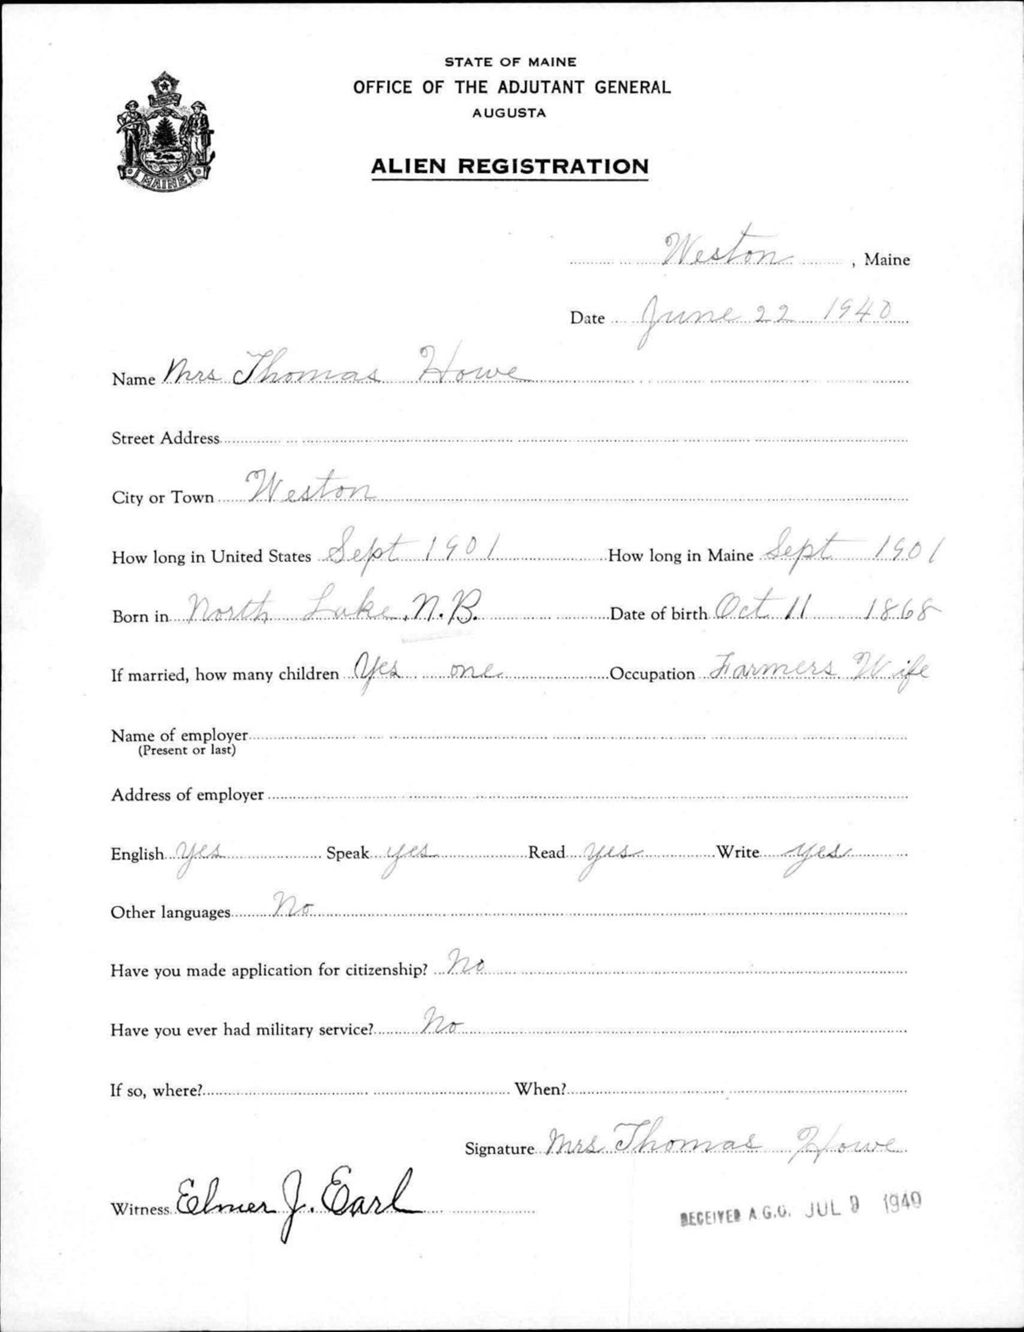 STATE OF MAINE
OFFICE OF THE ADJUTANT GENERAL
AUGUSTA
ALIEN REGISTRATION
MAINE
Weston, Maine
Date June 22 1940
Name Mrs Thomas Howe
Street Address
City or Town Weston
How long in United States Sept 1901 How long in Maine Sept 1901
Born in North Lake, N.B. Date of birth Oct 11 1868
If married, how many children Yes one Occupation Farmers Wife
Name of employer
(Present or last)
Address of employer
English yes Speak yes Read yes Write yes
Other languages No
Have you made application for citizenship? No
Have you ever had military service? No
If so, where? When?
Signature Mrs Thomas Howe
Witness Elmer J. Earl
RECEIVED A.G.O. JUL 9 1940